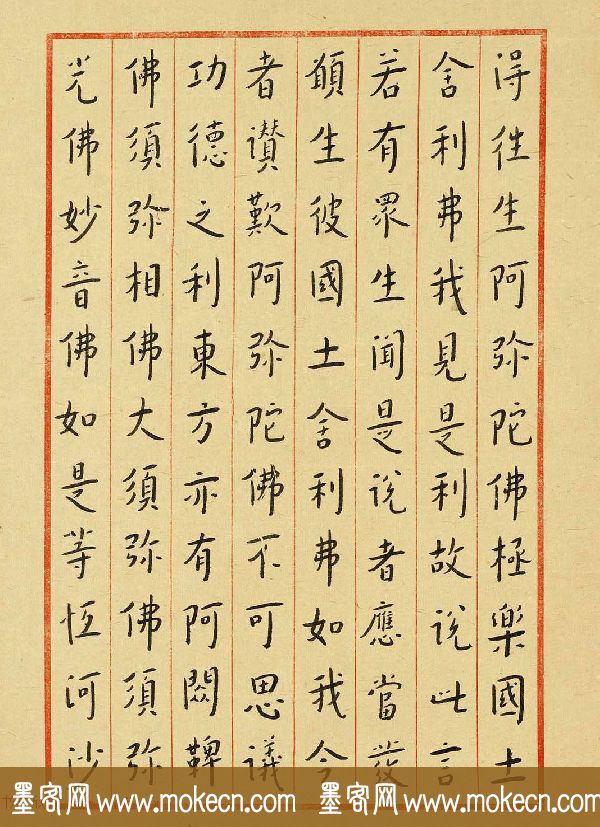 得往生阿弥陀佛極樂國土
舍利弗我見是利故說此言
若有眾生聞是說者應當發
願生彼國土舍利弗如我今
者讃歎阿弥陀佛不可思議
功德之利東方亦有阿閦鞞
佛須弥相佛大須弥佛須弥
光佛妙音佛如是等恒河沙
墨客网 www.mokecn.com 墨客网 www.mokecn.com